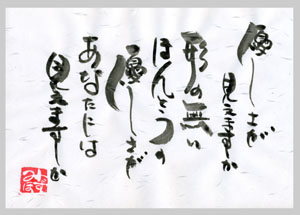 優しさが
見えますか
形の無い
ほんとうの
優しさが
あなたには
見えますか